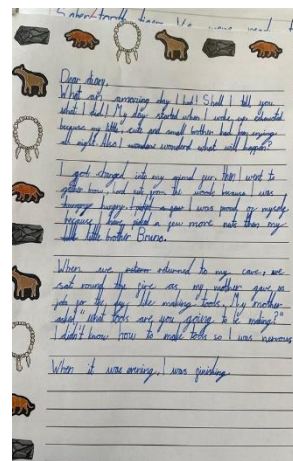 Dear diary,
What an amazing day I had! Shall I tell you
what I did! My day started when I woke up exhausted
because my little cute and small brother had been crying
all night. Also I wondered what will happen?
I got changed into my animal fur then I went to
gather how nuts from the woods because I was
hungry. I was proud of myself
because I have picked a few more nuts than my
little brother Bruno.
When we returned to my cave, we
sat round the fire as my mother gave us
jobs for the day like making tools. My mother
asked "what tools are you going to be making?"
I didn't know how to make tools so I was nervous
When it was evening, I was finishing